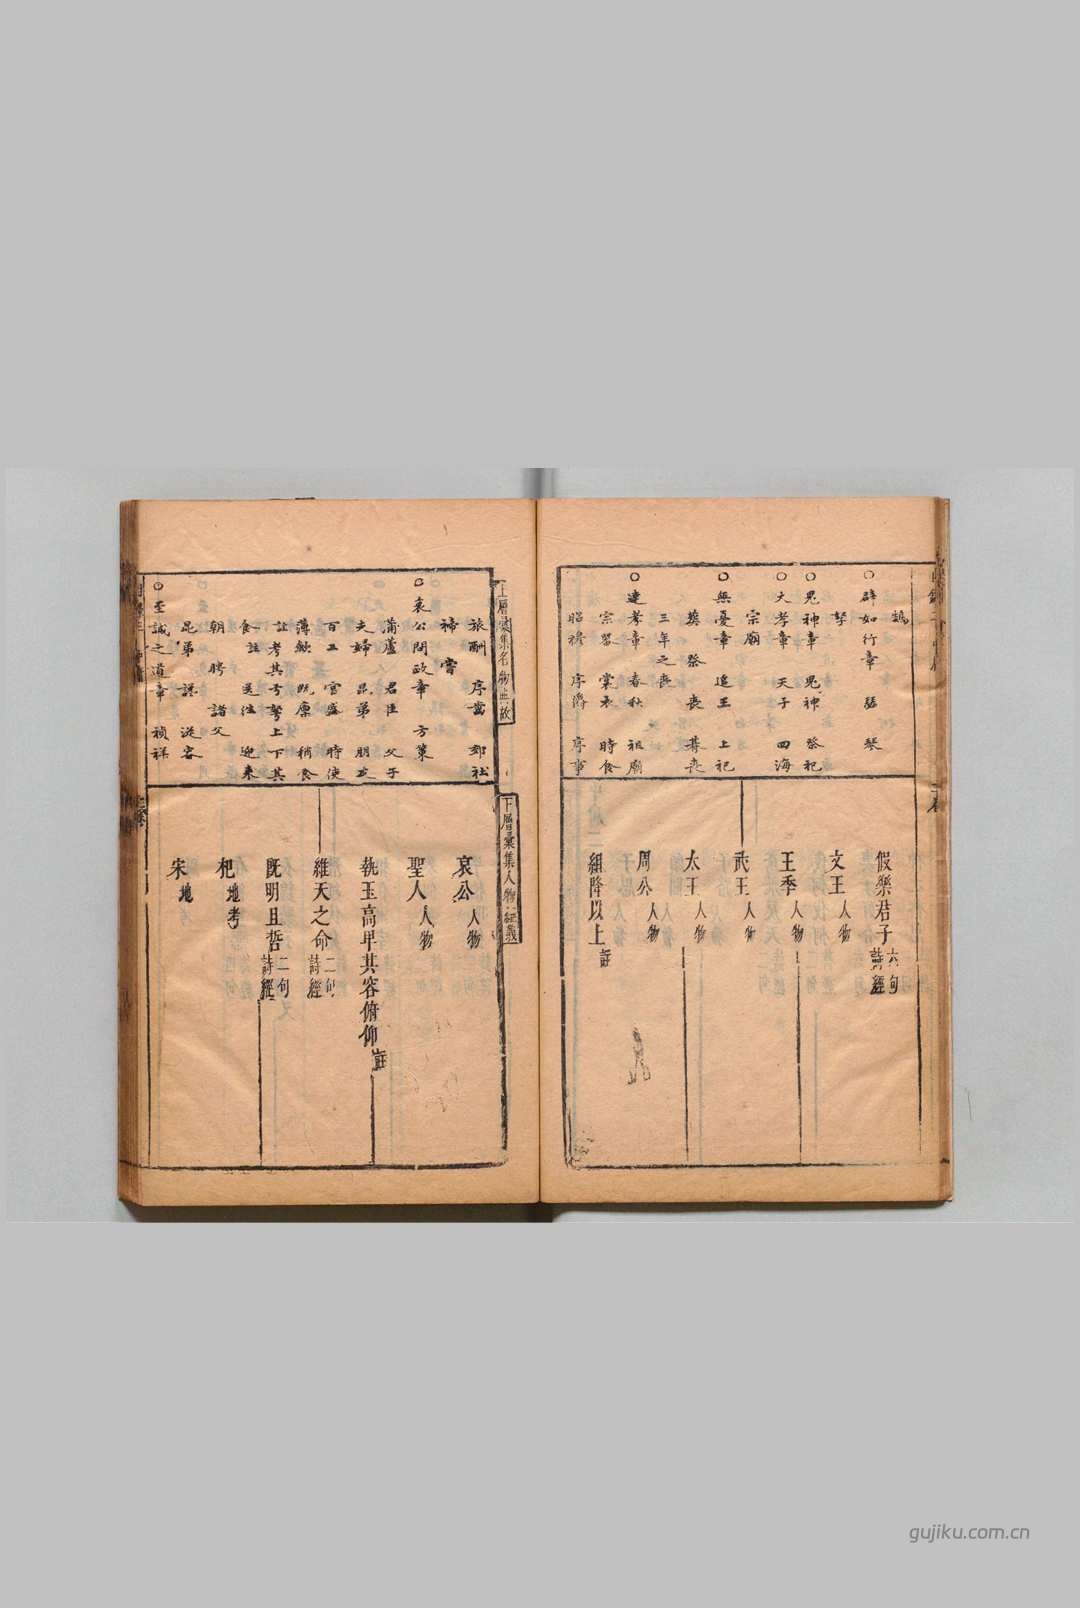 鵠
○辟如行章 瑟琴
孥
○鬼神章 鬼神 祭祀
○大孝章 天子 四海
宗廟
○無憂章 追王 上祀
葬 祭 喪 朞喪
三年之喪
○達孝章 春秋 祖廟
宗器 裳衣 時食
昭穆 序爵 序事
假樂君子六句詩經
文王人物
王季人物
武王人物
太王人物
周公人物
組䋲以上註
上層彙集名物典故
下層彙集人物經義
旅酬 序齒 郊社
禘 嘗
○哀公問政章 方策
蒲盧 君臣 父子
夫婦 昆弟 朋友
百工 官盛 時使
薄歛 既廩 稍食
註考其弓弩上下其
食註 送往 迎來
朝聘 諸父
昆弟 從容
○至誠之道章 禎祥
哀公人物
聖人人物
執玉高卑其容俯仰註
維天之命二句詩經
既明且哲二句詩經
杞地考
宋地
gujiku.com.cn